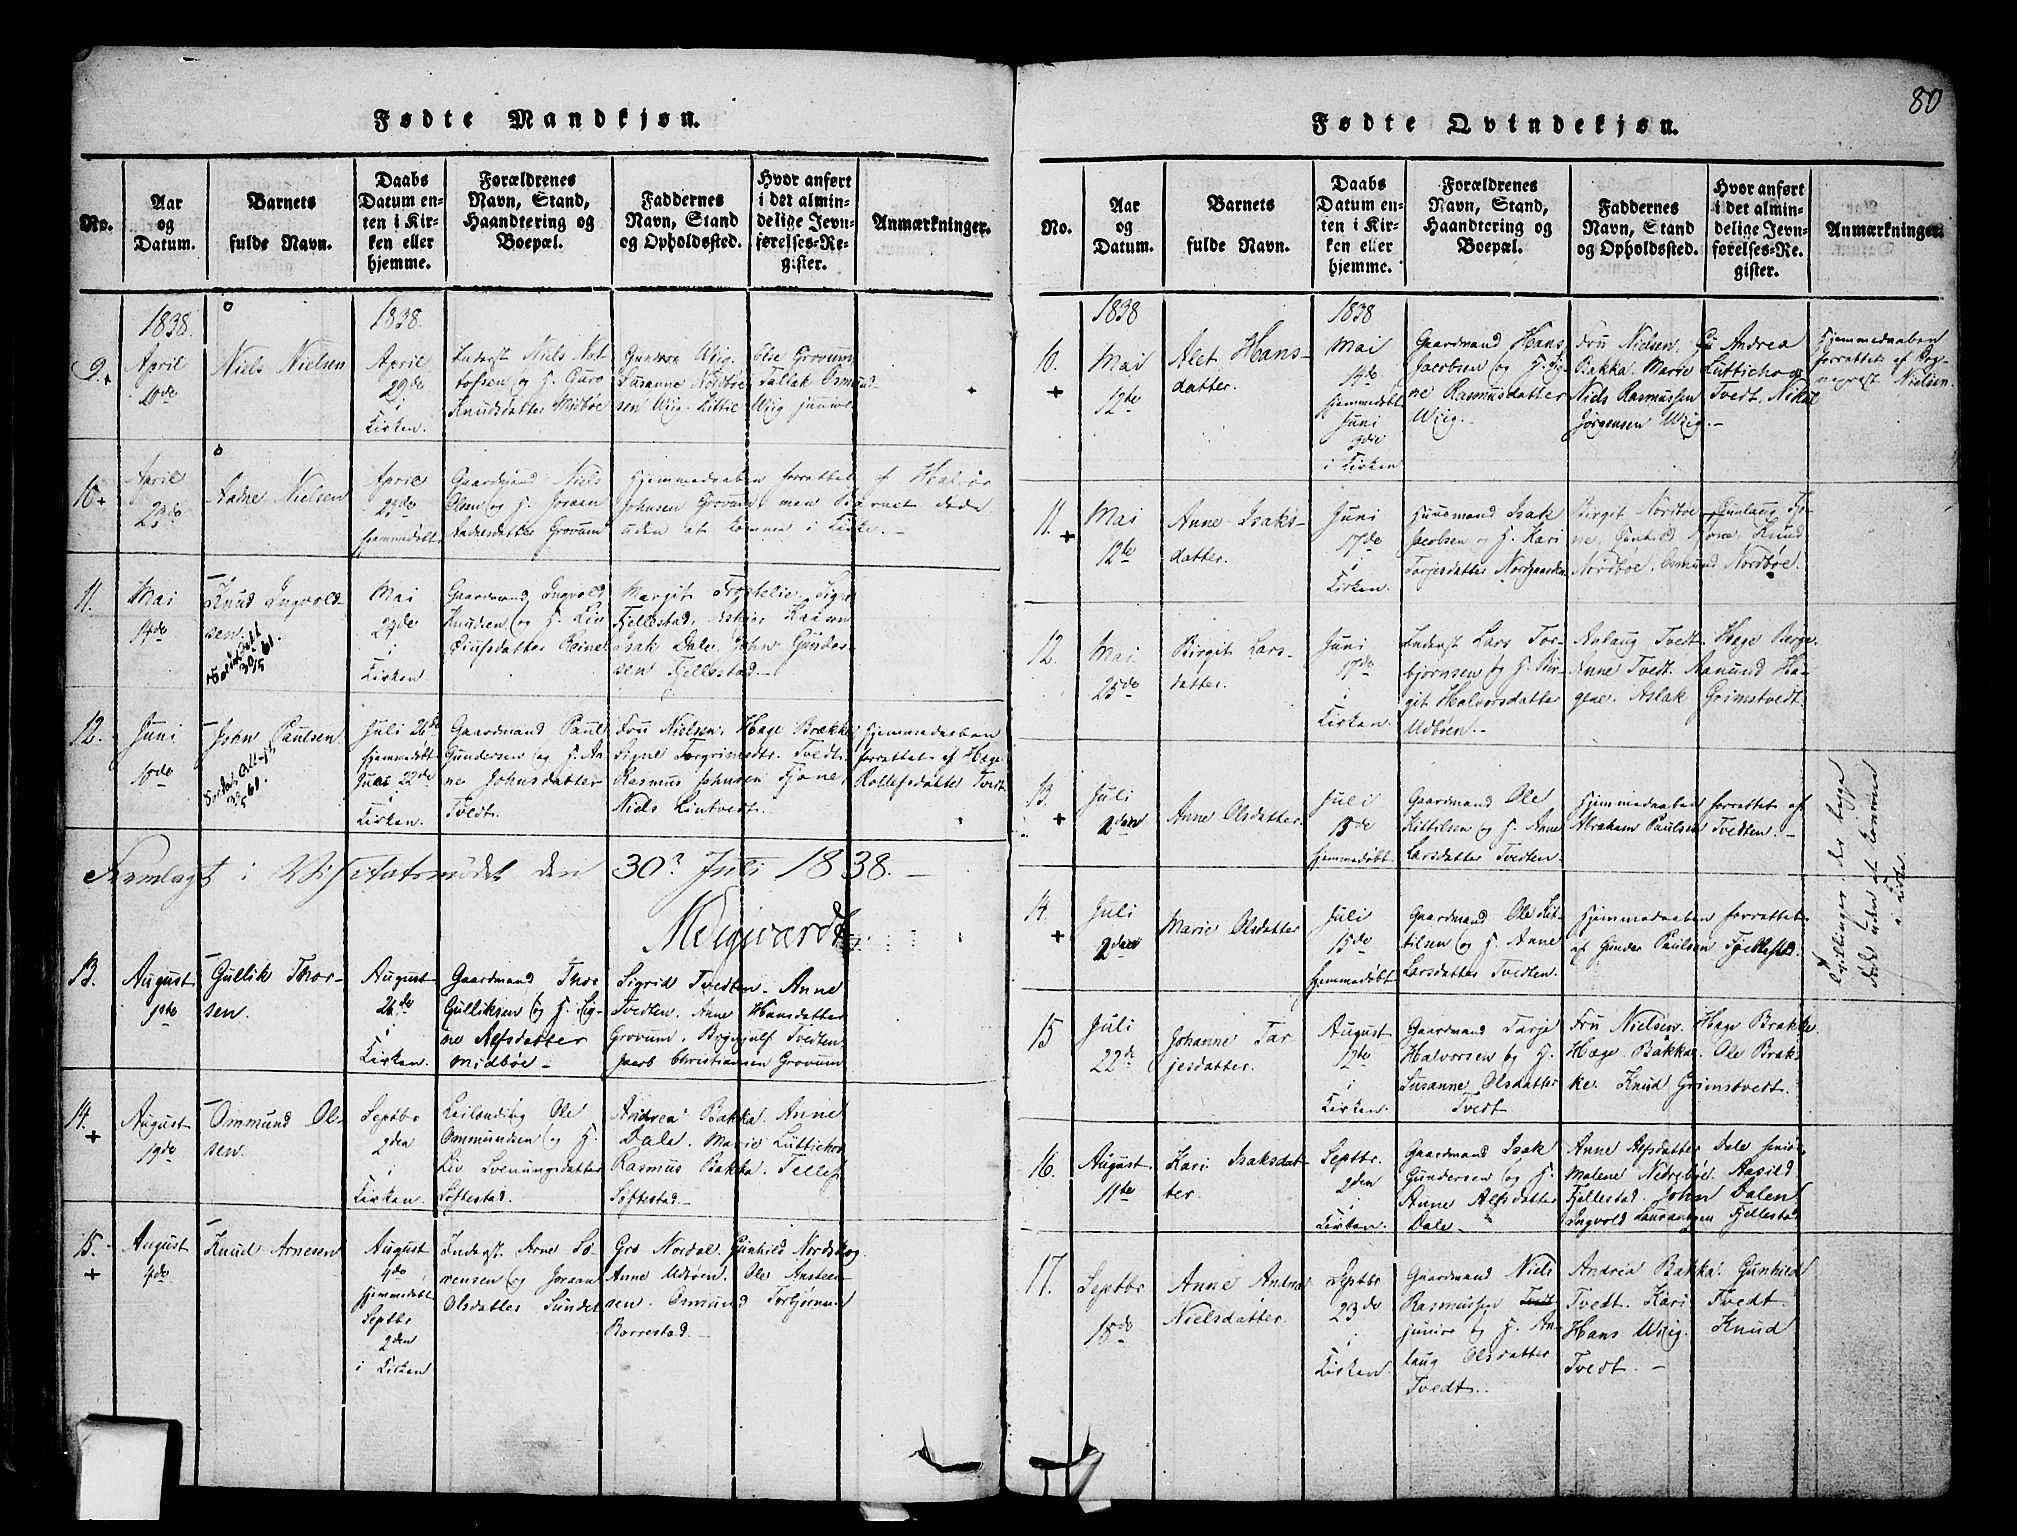 80
Fødte Mandkjøn.
No.
Aar
og
Datum.
Barnets
fulde Navn.
Daabs
Datum en-
ten i Kir-
ken eller
hjemme.
Forældrenes
Navn, Stand,
Haandtering og
Boepæl.
Faddernes
Navn, Stand
og Opholdssted.
Hvor anført
i det almin-
delige Jevn-
førelses-Re-
gister.
Anmærkninger.
9.
1838.
April
Niels Nielsen
1838.
April
29de
i
Kirken.
Inderst Niels Not-
tolfsen og H. Guro
Knudsdatter Midbøe
Gundero Wiig. Else Grovum
Susanne Nordbøe Tallak Osmund
sen Wiig. Kittil Wiig junior
10
April
23de
Aadne Nielsen
April
23de
hjemmedøbt
Gaardmand Niels
Olsen og H. Joraan
Andersdatter Grovum
Hjemmedaaben forrettet af Halvor
Johnsen Grovum men Barnet døde
uden at komme i Kirke.
11.
Mai
14de
Knud Ingvold-
sen.
30/5 61.
Mai
27de
i
Kirken
Gaardmand Ingvold
Knudsen og H. Liv
Eiufsdatter Reinel
Margit Trostelie. Signe
Fjellestad. Askjer Kaasen
Isak Dale. John Gunder-
sen Fjellestad.
12.
Juni
John Paulsen.
Juli 26de
hjemmedøbt
Juni 22de
i
Kirken.
Gaardmand Paul
Gundersen og H. An-
ne Johnsdatter
Tvedt.
Fru Nielsen. Hæge Brække
Signe Torgrimsdtr. Tvedt.
Rasmus Johnsen Fjone
Niels Lintvedt.
Hjemmedaaben
forrettet af Hæge
Rollefsdatter Tvedt
Fremlagt i Visitatsmødet den 30? Juli 1838.
13.
August
1ste
Gullik Thor-
sen.
August
26de
i
Kirken.
Gaardmand Thor
Gulliksen og H. Sig-
ne Alfsdatter
Midbøe
Sigrid Tvedten. Anne
Tvedten. Anne Hansdatter
Grovum. Brynjulf Tvedten
Jacob Christiansen Grovum
14.
August
19de
Ommund Ol-
sen.
Septbr
2den
i
Kirken.
Leilending Ole
Ommundsen og H.
Liv Svenungsdatter
Søftestad.
Andrea Bakka. Anne
Dale. Marie Lütticho
Rasmus Bakka. Tellef
Søftestad.
15.
August
4de
Knud Arnesen
August
4de
hjemmedøbt
Septbr
2den
i Kirken
Inderst Arne Sø-
rensen og Joraan
Olsdatter Sundet
Gro Nordal. Gunhild Nordskog
Anne Udbøen. Ole Ansteen-
sen. Osmund Torbjørnsen
Borrestad.
Fødte Qvindekjøn.
No.
Aar
og
Datum.
Barnets
fulde Navn.
Daabs
Datum en-
ten i Kir-
ken eller
hjemme.
Forældrenes
Navn, Stand,
Haandtering og
Boepæl.
Faddernes
Navn, Stand
og Opholdssted.
Hvor anført
i det almin-
delige Jevn-
førelses-Re-
gister.
Anmærkninger.
10.
1838
Mai
12te
Alet Hans-
datter.
1838
Mai
14de
hjemmedøbt
Juni
i Kirken
Gaardmand Hans
Jacobsen og H. Sig-
ne Rasmusdatter
Wiig.
Fru Nielsen. Andrea
Bakka. Marie Lütticho og
Niels Rasmussen Tvedt. Nikul
Jørgensen Wiig.
Hjemmedaaben
forrettet af Sog-
nepræst Nielsen
11.
Mai
12te
Anne Isaks-
datter.
Juni
17de
i
Kirken.
Huusmand Isak
Jacobsen og H. Kari
Tarjesdatter Nordgaarden
Birgit Nordbøe. Gunlaug Fjo-
ne. Gunhild Fjone. Knud
Nordbøe. Osmund Nordbøe.
12.
Mai
25de
Birgit Lars-
datter.
Juni
17de
i
Kirken.
Inderst Lars Tor-
bjørnsen og H. Bir-
git Halvorsdatter
Udbøen.
Aslaug Tvedt. Hæge Berge.
Anne Tvedt. Aanund Ha-
gene. Aslak Grimstvedt
13.
Juli
2den
Anne Olsdatter.
Juli
15de
hjemmedøbt
Gaardmand Ole
Kittilsen og H. Anne
Larsdatter Tvedten.
Hjemmedaaben forrettet af
Abraham Paulsen Tvedten.
14.
Juli
2den
Marie Olsdatter
Juli
15de
hjemmedøbt
Gaardmand Ole Kit-
tilsen og H. Anne
Larsdatter Tvedten.
Hjemmedaaben forrettet
af Gunder Paulsen Fjellestad.
Tvillinger, der begge
døde uden at komme
i Kirke.
15
Juli
22de
Johanne Tar
jesdatter.
August
12te
i
Kirken.
Gaardmand Tarje
Halvorsen og H.
Susanne Olsdatter
Tvedt
Fru Nielsen. Hæge Brække.
Hæge Bakka. Ole Bræk-
ke. Knud Grimstvedt.
16.
August
11te
Kari Isaksdat-
ter.
Septbr.
2den
i
Kirken.
Gaardmand Isak
Gundersen og H.
Anne Alfsdatter
Dale.
Anne Alfsdatter Dale senior
Malene Nedrebøe. Aasild
Fjellestad. John Dalen
Ingvold Laurantsen Fjellestad
17.
Septbr
15de
Anne Andrea
Nielsdatter.
Septbr
23de
i
Kirken.
Gaardmand Niels
Rasmussen Tvedt
junior og H. As-
laug Olsdatter
Tvedt.
Andrea Bakka. Gunhild
Tvedt. Kari Tvedt.
Hans Wiig. Knud
Tvedt.